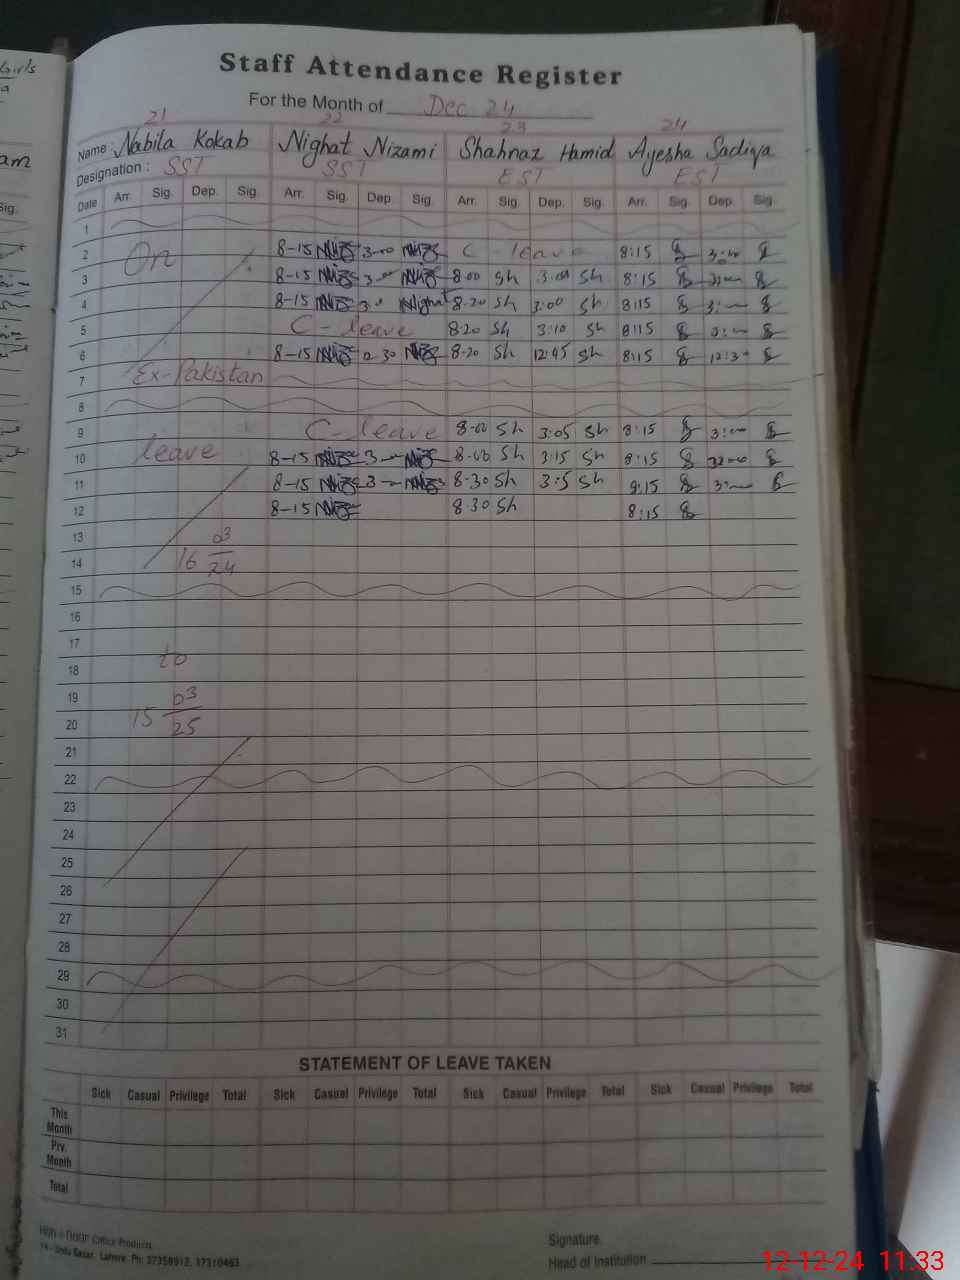 Girls
am
Sig.
Staff Attendance Register
For the Month of Dec 24
21 22 23 24
Name : Nabila Kokab Nighat Nizami Shahnaz Hamid Ayesha Sadiqa
Designation : SST SST EST EST
Date Arr. Sig. Dep. Sig. Arr. Sig. Dep. Sig. Arr. Sig. Dep. Sig. Arr. Sig. Dep. Sig.
1
2 On 8-15 3-00 C - leave 8:15
3 8-15 8-00 Sh 3.00 Sh 8:15
4 8-15 Nighat 8-20 Sh 3:00 Sh 8:15
5 C - leave 8:20 Sh 3:10 Sh 8:15
6 8-15 8-20 Sh 12:45 Sh 8:15 12:30
7 Ex-Pakistan
8
9 C - leave 8-00 Sh 3:05 Sh 8:15
10 leave 8-15 8-00 Sh 3:15 Sh 8:15
11 8-15 8-30 Sh 3:5 Sh
12 8-15 8.30 Sh 8:15
13 03
14 16 24
15
16
17
18 to
19 03
20 15 25
21
22
23
24
25
26
27
28
29
30
31
STATEMENT OF LEAVE TAKEN
Sick Casual Privilege Total Sick Casual Privilege Total Sick Casual Privilege Total Sick Casual Privilege Total
This Month
Prv. Month
Total
Office Products
14 - Urdu Bazar, Lahore. Ph: 37358912, 37310463
Signature.
Head of Institution
12-12-24 11:33